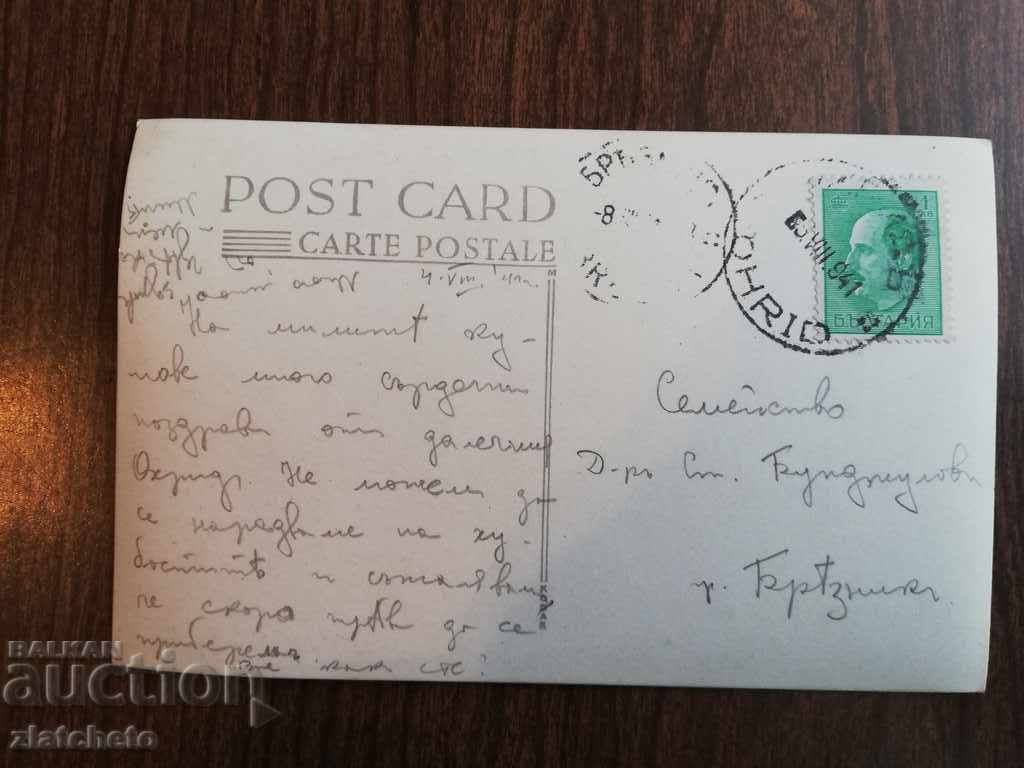 POST CARD
CARTE POSTALE
4. VIII. 41
На милитѣ ку-
мове много сърдечни
поздрави отъ далечния
Охридъ. Не можемъ да
се нарадваме на ху-
боститѣ и съжаляваме
че скоро трѣбва да се
приберемъ
Вие какъ сте?
OHRID
941
1
БЪЛГАРИЯ
-8
Семейство
Д-ръ Ст. Кунджулови
гр. Брѣзникъ.
BALKAN
auction
zlatcheto